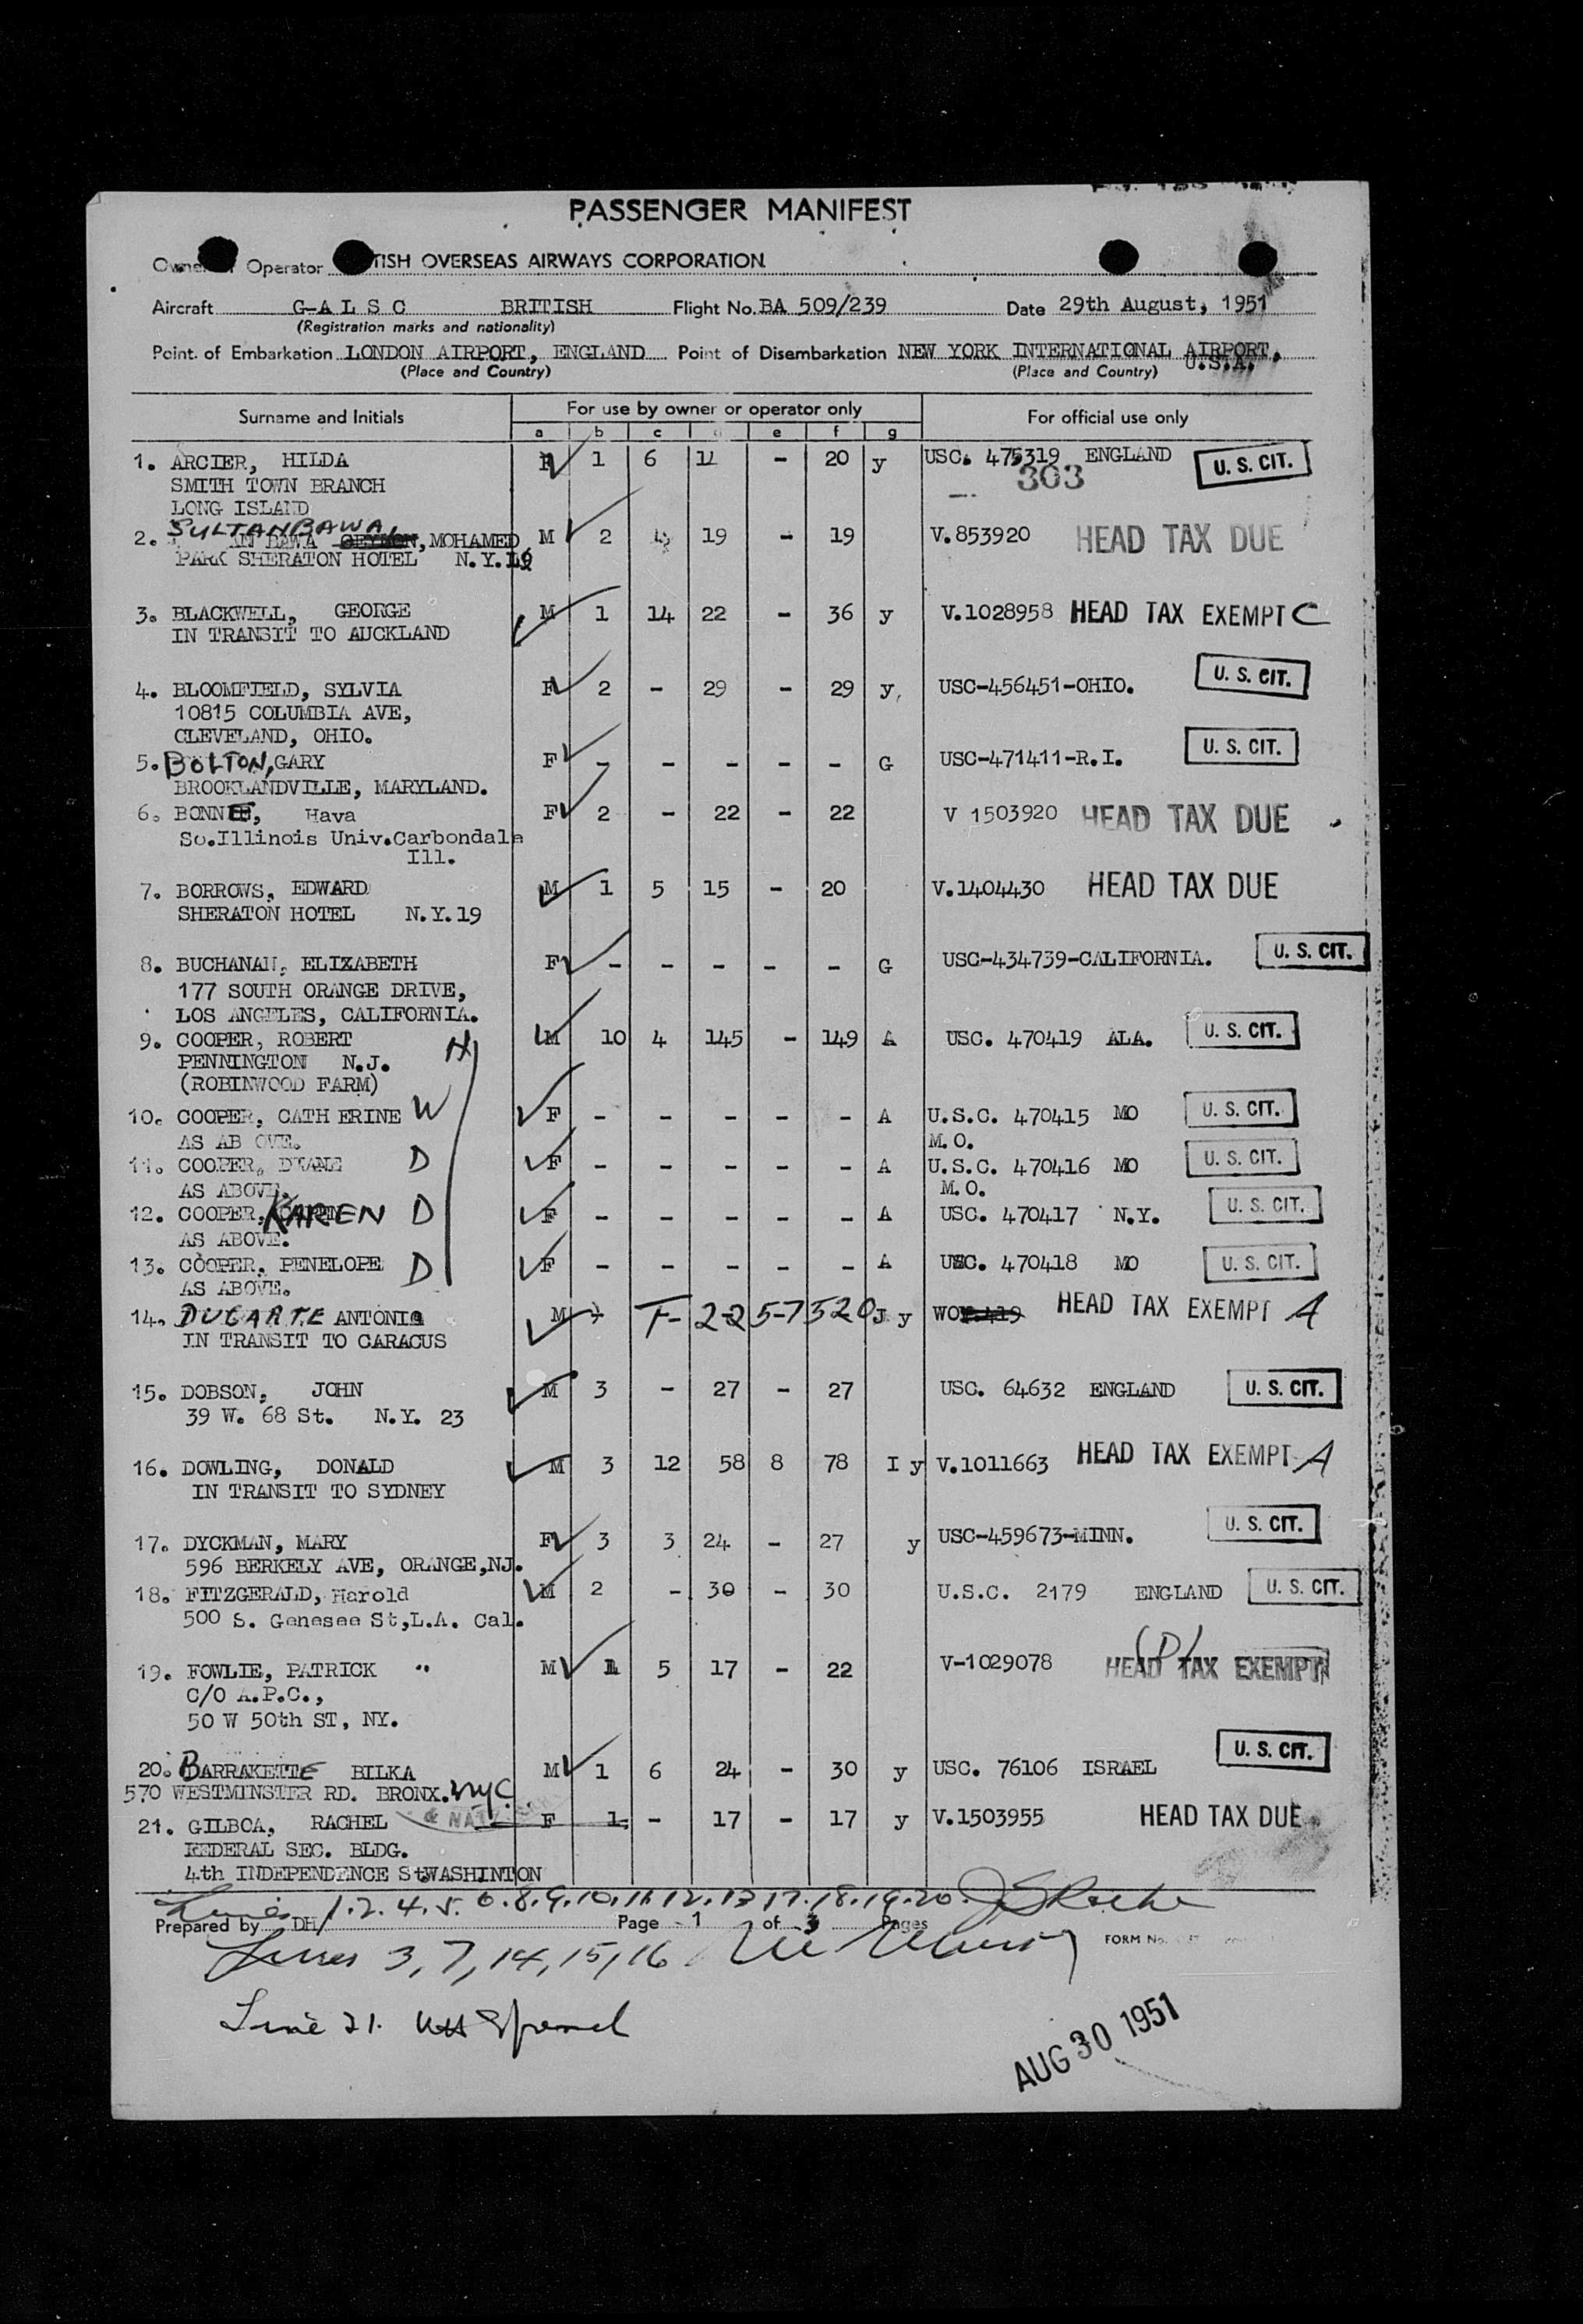 PASSENGER MANIFEST
Operator TISH OVERSEAS AIRWAYS CORPORATION
Aircraft G-A L S C BRITISH Flight No. BA 509/239 Date 29th August, 1951
(Registration marks and nationality)
Point of Embarkation LONDON AIRPORT, ENGLAND Point of Disembarkation NEW YORK INTERNATIONAL AIRPORT,
(Place and Country) (Place and Country) U.S.A.
Surname and Initials For use by owner or operator only For official use only
a b c e f g
1. ARCIER, HILDA 1 6 - 20 y USC. 475319 ENGLAND U. S. CIT.
SMITH TOWN BRANCH 303
LONG ISLAND
SULTANBAWA,
2. BAWA MOHAMED M 2 19 - 19 V.853920 HEAD TAX DUE
PARK SHERATON HOTEL N.Y.
3. BLACKWELL, GEORGE M 1 14 22 - 36 y V.1028958 HEAD TAX EXEMPT C
IN TRANSIT TO AUCKLAND
4. BLOOMFIELD, SYLVIA F 2 - 29 - 29 y, USC-456451-OHIO. U. S. CIT.
10815 COLUMBIA AVE,
CLEVELAND, OHIO.
5. BOLTON, GARY F - - - - - G USC-471411-R.I. U. S. CIT.
BROOKLANDVILLE, MARYLAND.
6. Hava F 2 - 22 - 22 V 1503920 HEAD TAX DUE
So.Illinois Univ.Carbondale
Ill.
7. BORROWS, EDWARD M 1 5 15 - 20 V.1404430 HEAD TAX DUE
SHERATON HOTEL N.Y.19
8. BUCHANAN, ELIZABETH F - - - - - G USC-434739-CALIFORNIA. U. S. CIT.
177 SOUTH ORANGE DRIVE,
LOS ANGELES, CALIFORNIA.
9. COOPER, ROBERT H M 10 4 145 - 149 A USC. 470419 ALA. U. S. CIT.
PENNINGTON N.J.
(ROBINWOOD FARM)
10. COOPER, CATH ERINE W F - - - - - A U.S.C. 470415 MO U. S. CIT.
AS AB OVE. M.O.
11. COOPER, DIANE D F - - - - - A U.S.C. 470416 MO U. S. CIT.
AS ABOVE. M.O.
12. COOPER, KAREN D F - - - - - A USC. 470417 N.Y. U. S. CIT.
AS ABOVE.
13. COOPER, PENELOPE D F - - - - - A USC. 470418 MO U. S. CIT.
AS ABOVE.
14. DUGARTE ANTONIO M T-225-7520 J y WO HEAD TAX EXEMPT A
IN TRANSIT TO CARACUS
15. DOBSON, JOHN M 3 - 27 - 27 USC. 64632 ENGLAND U. S. CIT.
39 W. 68 St. N.Y. 23
16. DOWLING, DONALD M 3 12 58 8 78 I y V.1011663 HEAD TAX EXEMPT A
IN TRANSIT TO SYDNEY
17. DYCKMAN, MARY F 3 3 24 - 27 y USC-459673-MINN. U. S. CIT.
596 BERKELY AVE, ORANGE,NJ.
18. FITZGERALD, Harold M 2 - 30 - 30 U.S.C. 2179 ENGLAND U. S. CIT.
500 S. Genesee St,L.A. Cal.
19. FOWLIE, PATRICK M 1 5 17 - 22 V-1029078 HEAD TAX EXEMPT
C/O A.P.C.,
50 W 50th ST, NY.
20. BARRAKETTE BILKA M 1 6 24 - 30 y USC. 76106 ISRAEL U. S. CIT.
570 WESTMINSTER RD. BRONX. NYC
21. GILBOA, RACHEL F 1 - 17 - 17 y V.1503955 HEAD TAX DUE
FEDERAL SEC. BLDG.
4th INDEPENDENCE St WASHINTON
Lines 1.2.4.5.6.8.9.10.11.12.13.17.18.19.20.
Prepared by DH/ Page 1 of 3 Pages
Lines 3, 7, 14, 15, 16 FORM No.
Line 21.
AUG 30 1951